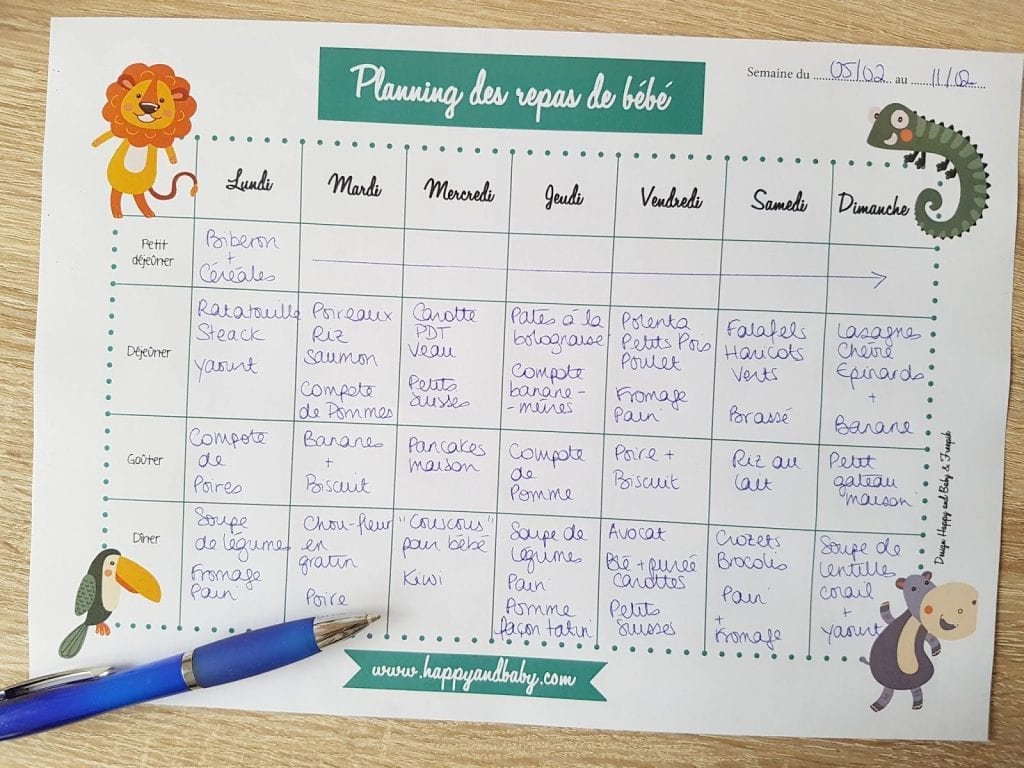 Planning des repas de bébé
Semaine du 05/02 au 11/02
Lundi
Mardi
Mercredi
Jeudi
Vendredi
Samedi
Dimanche
Petit
déjeûner
Biberon
+
Céréales
Déjeûner
Ratatouille
Steack
Yaourt
Poireaux
Riz
Saumon
Compote
de Pommes
Carotte
PDT
Veau
Petits
Suisses
Pates à la
bolognaise
Compote
banane-
-mûres
Polenta
Petits Pois
Poulet
Fromage
Pain
Falafels
Haricots
Verts
Brassé
Lasagnes
Chèvre
Epinards
+
Banane
Goûter
Compote
de
Poires
Bananes
+
Biscuit
Pancakes
maison
Compote
de
Pomme
Poire +
Biscuit
Riz au
lait
Petit
gateau
maison
Dîner
Soupe
de légumes
Fromage
Pain
Chou-fleur
en
gratin
Poire
"Couscous"
pour bébé
Kiwi
Soupe de
légumes
Pain
Pomme
façon tatin
Avocat
Blé + purée
Carottes
Petits
Suisses
Crozets
Brocolis
Pain
+
Fromage
Soupe de
lentilles
corail
+
yaourt
Design Happy and Baby & Freepik
www.happyandbaby.com